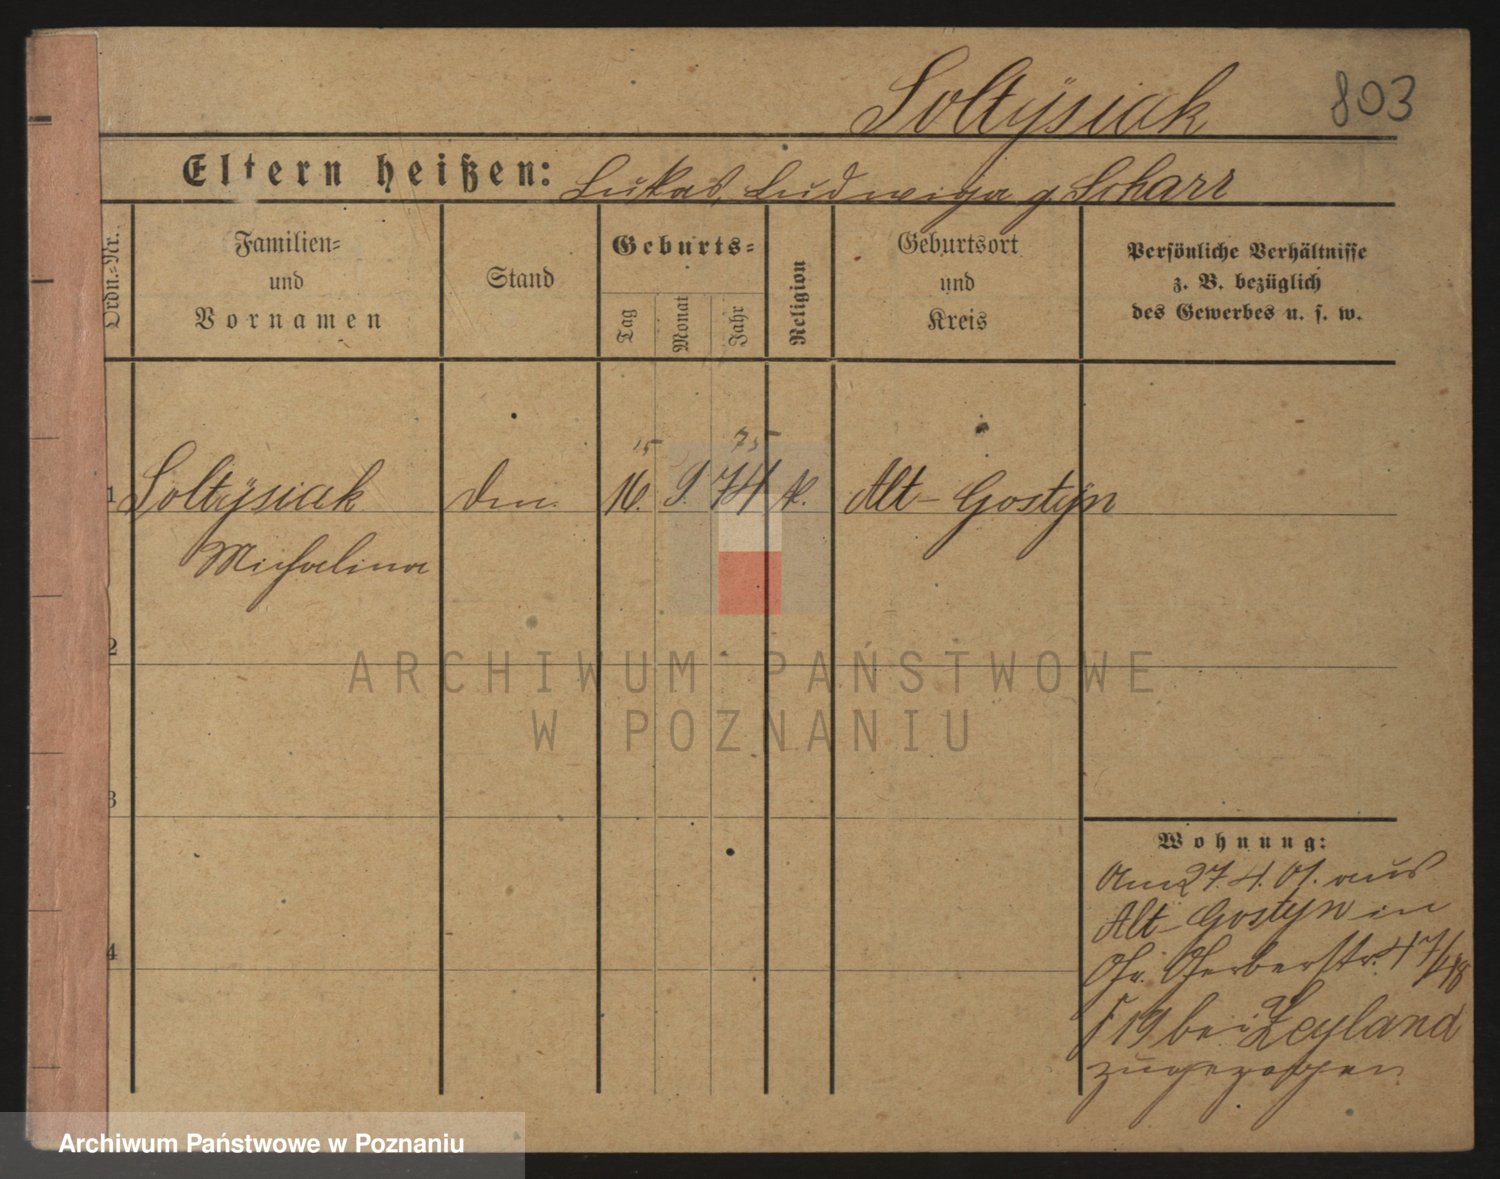 Soltysiak 803
Eltern heißen: Lukas, Ludwiga g. Scharr
Ordn.-Nr.
Familien-
und
Vornamen
Stand
Geburts-
Tag
Monat
Jahr
Religion
Geburtsort
und
Kreis
Persönliche Verhältnisse
z. B. bezüglich
des Gewerbes u. s. w.
15 75
1 Soltysiak 16. 9. 74 k. Alt-Gostyn
Michalina
2
ARCHIWUM PAŃSTWOWE
W POZNANIU
3
Wohnung:
Am 27. 4. 01. aus
Alt-Gostyn in
Gr. Gerberstr. 47/48
19 bei Leyland
zugezogen
4
Archiwum Państwowe w Poznaniu